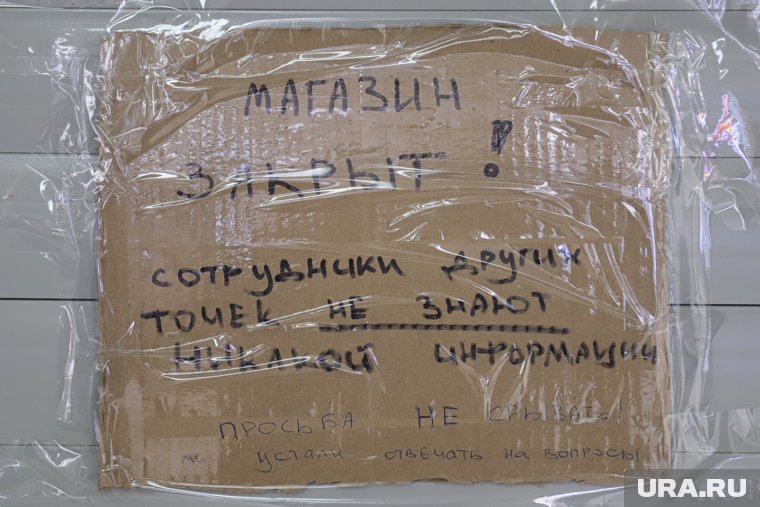 МАГАЗИН
ЗАКРЫТ!
СОТРУДНИКИ ДРУГИХ
ТОЧЕК НЕ ЗНАЮТ
НИКАКОЙ ИНФОРМАЦИИ
ПРОСЬБА НЕ СРЫВАТЬ!...
МЫ УСТАЛИ ОТВЕЧАТЬ НА ВОПРОСЫ
URA.RU